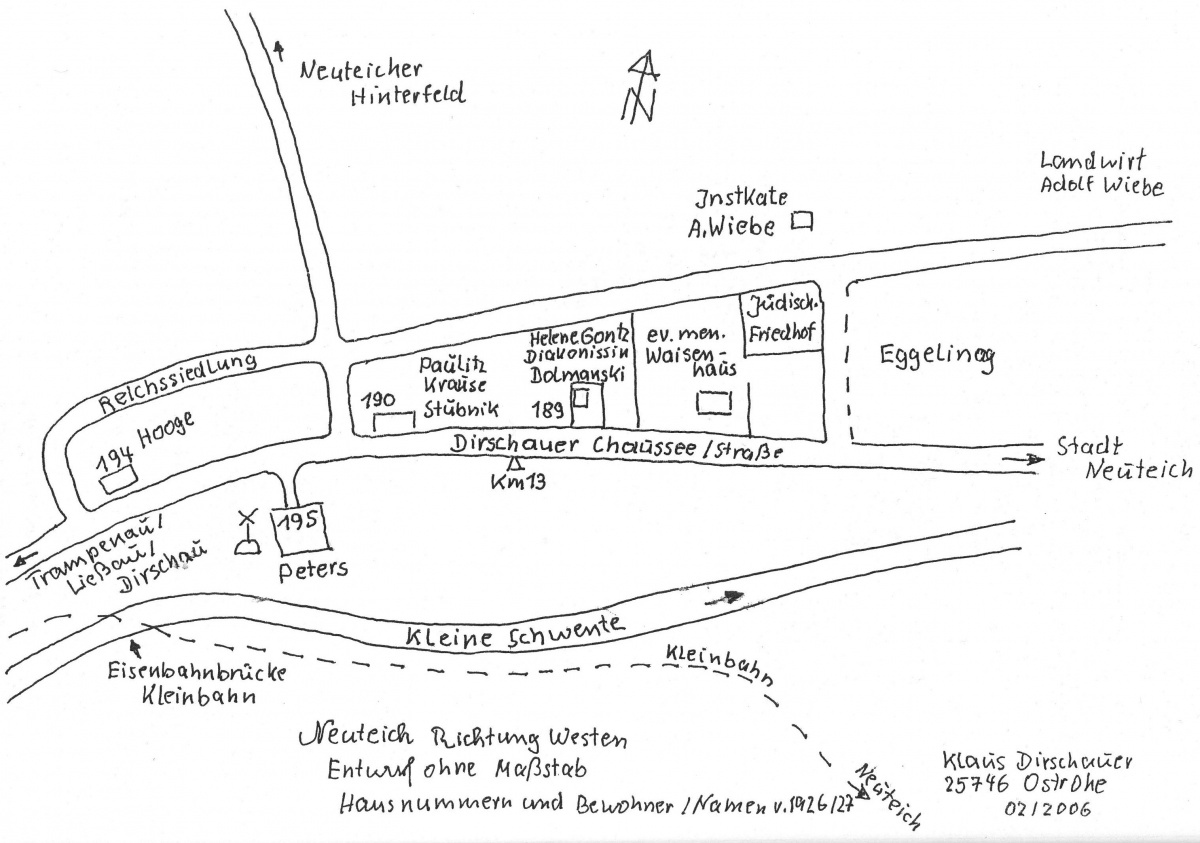 Neuteicher
Hinterfeld
N
Landwirt
Adolf Wiebe
Instkate
A. Wiebe
Jüdisch.
Friedhof
Helene Gontz
Diakonissin
Dolmanski
189
ev. men.
Waisen-
haus
Eggelinag
Reichssiedlung
Paulitz
Krause
Stübnik
190
Hooge
194
Dirschauer Chaussee / Straße
Km 13
Stadt
Neuteich
195
Peters
Trampenau /
Ließau /
Dirschau
Kleine Schwente
Kleinbahn
Eisenbahnbrücke
Kleinbahn
Neuteich
Neuteich Richtung Westen
Entwurf ohne Maßstab
Hausnummern und Bewohner / Namen v. 1926/27
Klaus Dirschauer
25746 Ostrohe
02/2006